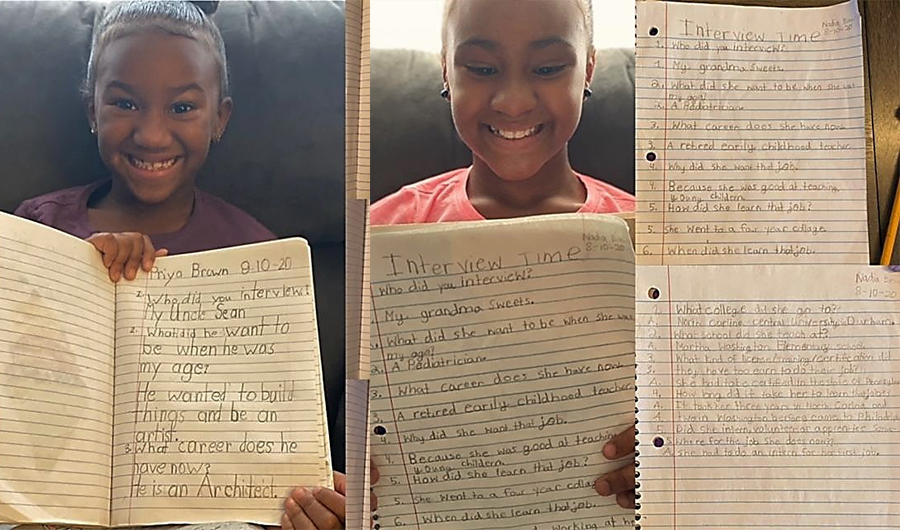 Priya Brown 8-10-20
Who did you interview?
My Uncle Sean
2. What did he want to
be when he was
my age?
He wanted to build
things and be an
artist.
3. What career does he
have now?
He is an Architect.
Interview Time
Nadia
8-10-20
Who did you interview?
My grandma Sweets.
What did she want to be when she was
my age?
2. A Pediatrician
3. What career does she have now
3. A retired early childhood teacher
4. Why did she want that job.
4. Because she was good at teaching
young childern.
5. How did she learn that job?
5. She went to a four year collage
6. When did she learn that job.
working at
Interview Time
Nadia
8-10-20
1. Who did you interview?
1. My grandma Sweets.
2. What did she want to be when she was
my age?
2. A Pediatrician
3. What career does she have now
3. A retired early childhood teacher
4. Why did she want that job.
4. Because she was good at teaching
young childern.
5. How did she learn that job?
5. She went to a four year collage
6. When did she learn that job.
Nadia
8-10-20
1. What college did she go to?
A. North Central University Durham
2. What school did she teach at?
A. Martha Washington Elementary school
3. What kind of
3. they have too earn to do their job?
A. She had to be certified in the state of
4. How long did it take her to learn the job?
A. It took her three years in North
Martha Washington before
5. Did she intern, volunteer or apprentice
where for the job she does now?
A. She had to do an intern for her first job.